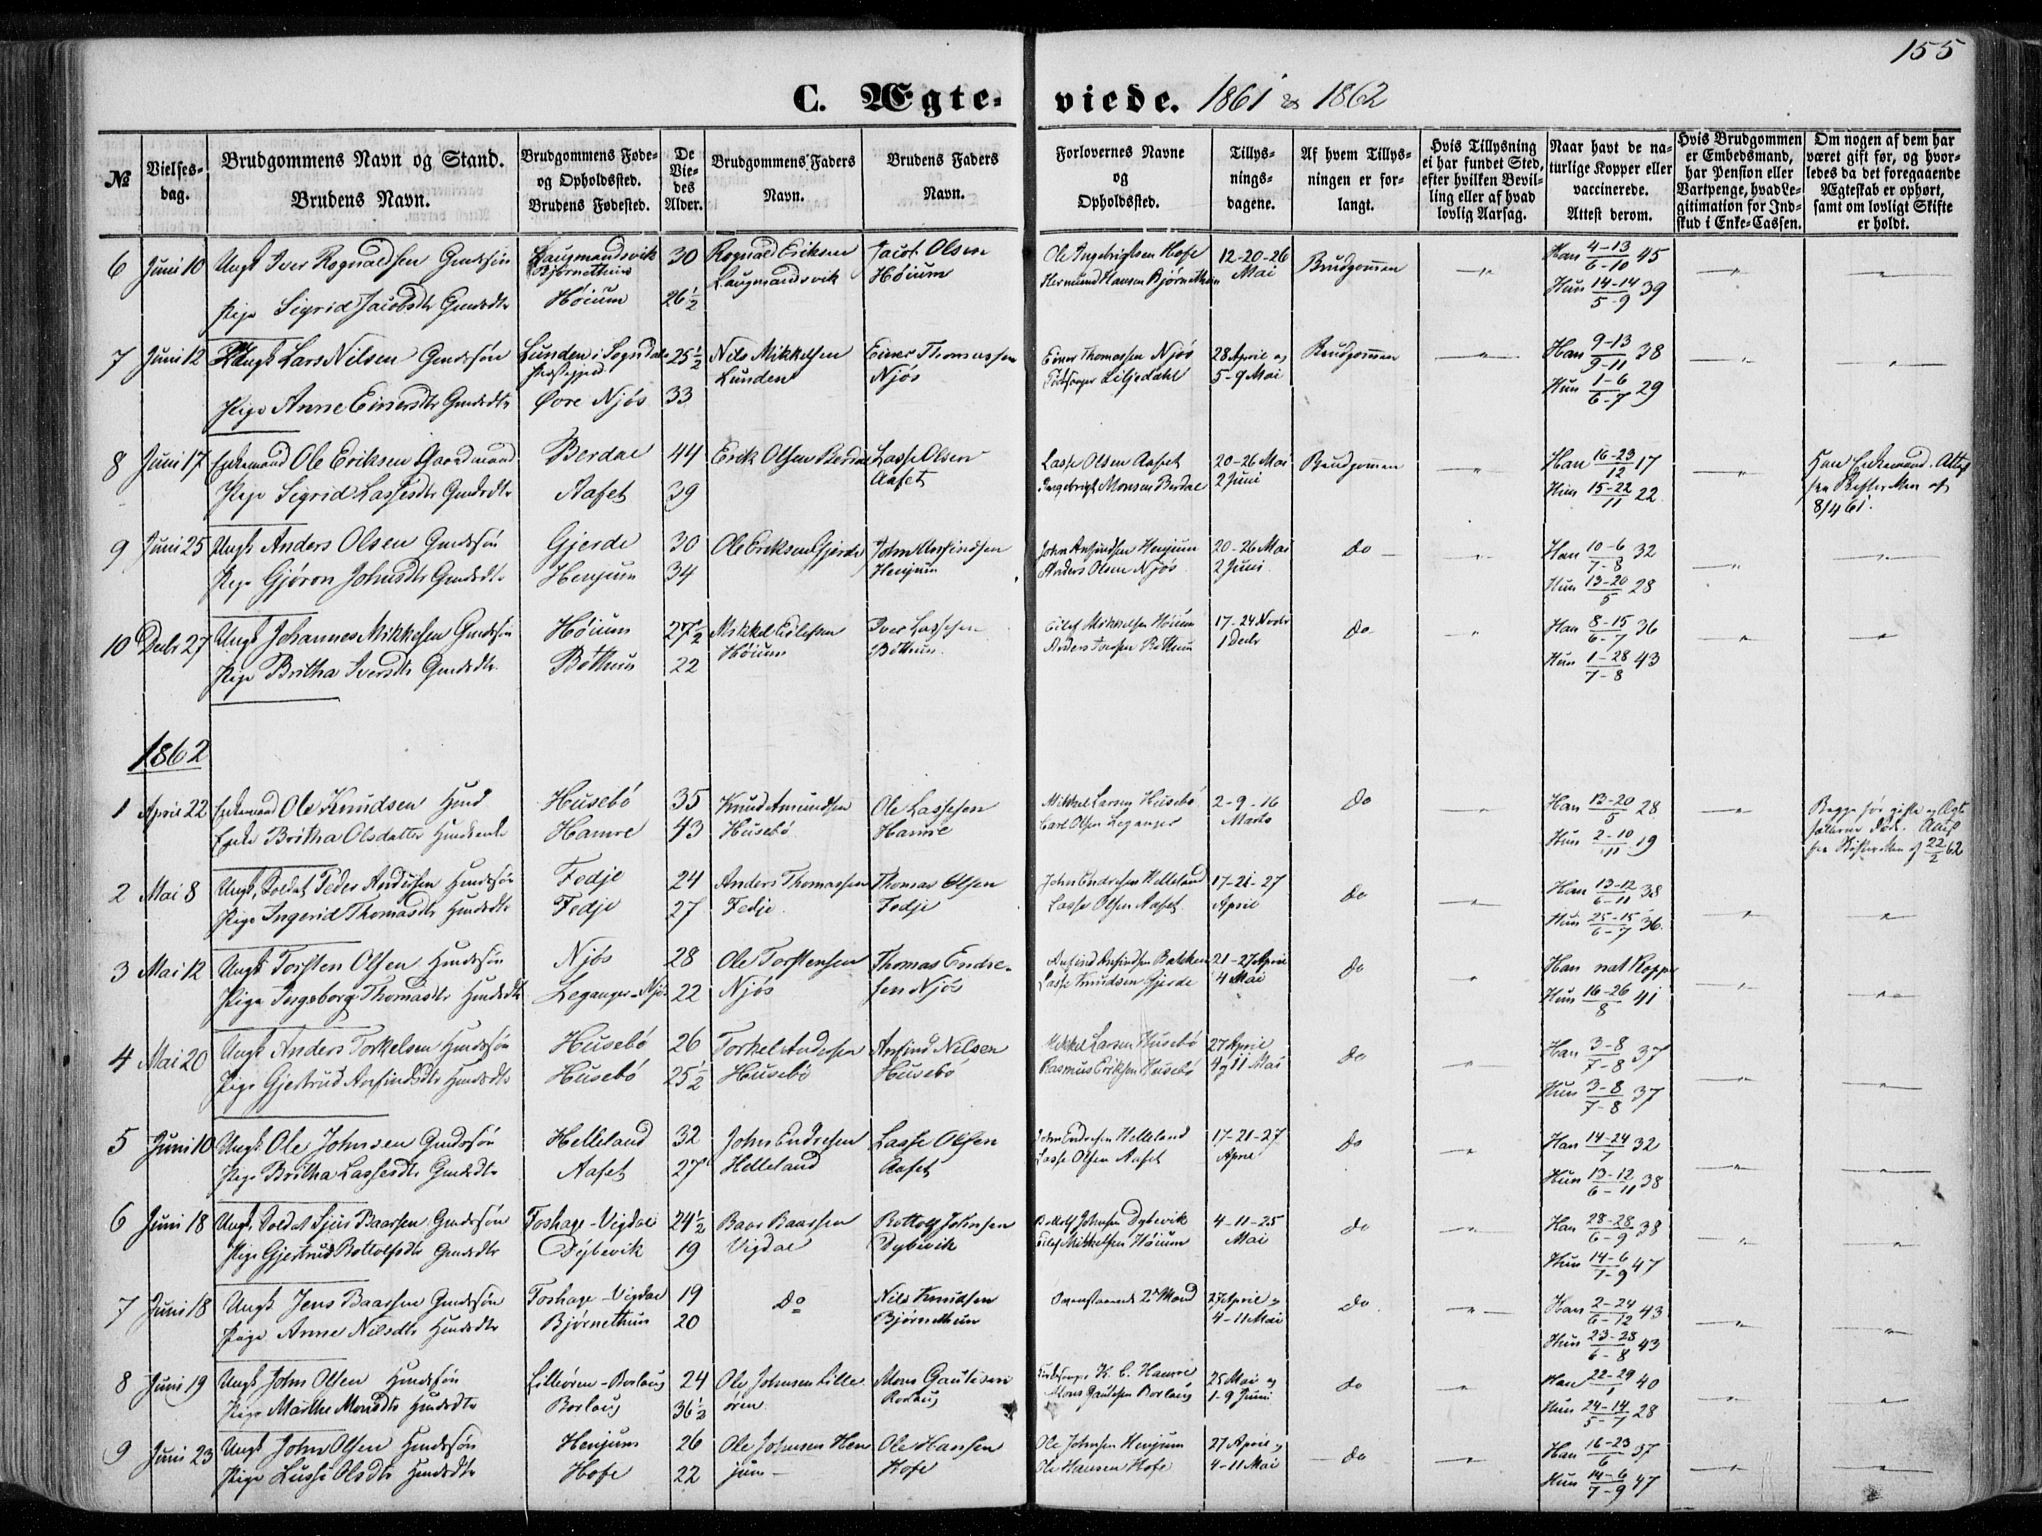 155
C. Ægte- viede. 1861 & 1862
№
Vielses-
dag.
Brudgommens Navn og Stand.
Brudens Navn.
Brudgommens Føde-
og Opholdssted.
Brudens Fødested.
De
Vie-
des
Alder.
Brudgommens Faders
Navn.
Brudens Faders
Navn.
Forlovernes Navne
og
Opholdssted.
Tillys-
nings-
dagene.
Af hvem Tillys-
ningen er for-
langt.
Hvis Tillysning
ei har fundet Sted,
efter hvilken Bevil-
ling eller af hvad
lovlig Aarsag.
Naar havt de na-
turlige Kopper eller
vaccinerede.
Attest derom.
Hvis Brudgommen
er Embedsmand,
har Pension eller
Vartpenge, hvad Le-
gitimation for Ind-
skud i Enke-Cassen.
Om nogen af dem har
været gift før, og hvor-
ledes da det foregaaende
Ægteskab er ophørt,
samt om lovligt Skifte
er holdt.
6 Juni 10 Ungk Iver Rognaldsen Gmdsøn Laugmandsvik 30 Rognald Eriksen Jacob Olsen Ole Ingebrigtsen Hofe 12-20-26 Brudgommen Han 4-13/6-10 45
Bjørnethun Laugmandsvik Høium Hermund Hansen Bjørnethun Mai
Pige Sigrid Jacobsdtr Gmdsdtr Høium 26½ Hun 14-14/5-9 39
7 Juni 12 Ungk Lars Nilsen Gmdsøn Lunden i Sogndals 25½ Nils Mikkelsen Einer Thomassen Einer Thomassen Njøs 28 April og Brudgommen Han 9-13/9-11 38
Præstegjeld Lunden Njøs Liljedahl 5-9 Mai
Pige Anne Einersdtr Gmdsdtr Øvre Njøs 33 Hun 1-6/6-7 29
8 Juni 17 Enkemand Ole Eriksen Gaardmand Berdal 44 Erik Olsen Berdal Lasse Olsen Lasse Olsen Aafet 20-26 Mai Brudgommen Han 16-23/12 17 Han Enkemand. Attest
Pige Sigrid Lassesdtr Gmdsdtr Aafet 39 Aafet Ingebrigt Monsen Berdal 2 Juni Hun 15-22/11 22 fra Skifteretten af
8/4 61.
9 Juni 25 Ungk Anders Olsen Gmdsøn Gjerde 30 Ole Eriksen Gjerde John Anfindsen John Anfindsen Henjum 20-26 Mai do Han 10-6/7-8 32
Pige Gjøron Johnsdtr Gmdsdtr Henjum 34 Henjum Anders Olsen Njøs 2 Juni Hun 13-20/5 28
10 Decbr 27 Ungk Johannes Mikkelsen Gmdsøn Høium 27½ Mikkel Eilefsen Iver Lassesen Eilef Mikkelsen Høium 17-24 Novbr do Han 8-15/6-7 36
Pige Britha Iversdtr Gmdsdtr Bøthun 22 Høium Bøthun Anders 1 Decbr Hun 1-28/7-8 43
1862
1 April 22 Enkemand Ole Knudsen Hmd Husebø 35 Knud Amundsen Ole Lassesen Mikkel Larsen Husebø 2-9-16 do Han 13-20/5 28 Begge før gifte og Ægte
Enke Britha Olsdatter Hmdenke Hamre 43 Husebø Hamre Carl Olsen Leganger Marts Hun 2-10/11 19 fællerne døde. Attest
fra Skifteretten af 22/2 62
2 Mai 8 Ungk, Soldat Peder Andersen Hmdsøn Fedje 24 Anders Thomassen Thomas Olsen John Endresen Helleland 17-21-27 do Han 13-12/6-11 38
Pige Ingerid Thomasdtr Hmdsdtr Fedje 27 Fedje Fedje Lasse Olsen Aafet April Hun 25-15/6-7 36
3 Mai 12 Ungk Torsten Olsen Hmdsøn Njøs 28 Ole Torstensen Thomas Endre- Anfind Anfindsen Bakken 21-27 April do Han nat Kopper
Pige Ingeborg Thomasdtr Hmdsdtr Leganger-Njøs 22 Njøs sen Njøs Lasse Knudsen Gjerde 4 Mai Hun 16-26/8 41
4 Mai 20 Ungk Anders Torkelsen Hmdsøn Husebø 26 Torkel Andersen Anfind Nilsen Mikkel Larsen Husebø 27 April do Han 3-8/7-8 37
Pige Gjertrud Anfindsdtr Hmdsdtr Husebø 25½ Husebø Husebø Rasmus Eriksen Husebø 4 og 11 Mai Hun 3-8/7-8 37
5 Juni 10 Ungk Ole Johnsen Gmdsøn Helleland 32 John Endresen Lasse Olsen John Endresen Helleland 17-21-27 do Han 14-24/7 32
Pige Britha Lassesdtr Gmdsdtr Aafet 27 Helleland Aafet Lasse Olsen Aafet April Hun 13-12/6-11 38
6 Juni 18 Ungk, Soldat Sjur Baarsen Gmdsøn Foshage-Vigdal 24½ Baar Baarsen Bottolf Johnsen Bottolf Johnsen Dybevik 4-11-25 do Han 28-28/6-9 38
Pige Gjertrud Bottolfsdtr Gmdsdtr Dybevik 19 Vigdal Dybevik Eilef Mikkelsen Høium Mai Hun 14-6/7-9 47
7 Juni 18 Ungk Jens Baarsen Gmdsøn Foshage-Vigdal 19 Do Nils Knudsen Ovenstaaende 2de Mænd 27 April og do Han 2-24/6-12 43
Pige Anne Nilsdtr Hmdsdtr Bjørnethun 20 Bjørnethun 4-11 Mai Hun 23-28/6-8 43
8 Juni 19 Ungk John Olsen Hmdsøn Lilleøren-Borlaug 24 Ole Johnsen Lille Mons Gautesen K. C. Hamre 25 Mai og do Han 22-29/1 40
Pige Marthe Monsdtr Hmdsdtr Borlaug 36½ øren Borlaug Mons Gautesen Borlaug 1-9 Juni Hun 24-14/5-7 28
9 Juni 23 Ungk John Olsen Hmdsøn Henjum 26 Ole Johnsen Hen Ole Hansen Ole Johnsen Henjum 27 April og do Han 16-23/6 37
Pige Lussi Olsdtr Hmdsdtr Hofe 22 jum Hofe Ole Hansen Hofe 4-11 Mai Hun 14-6/7-9 47